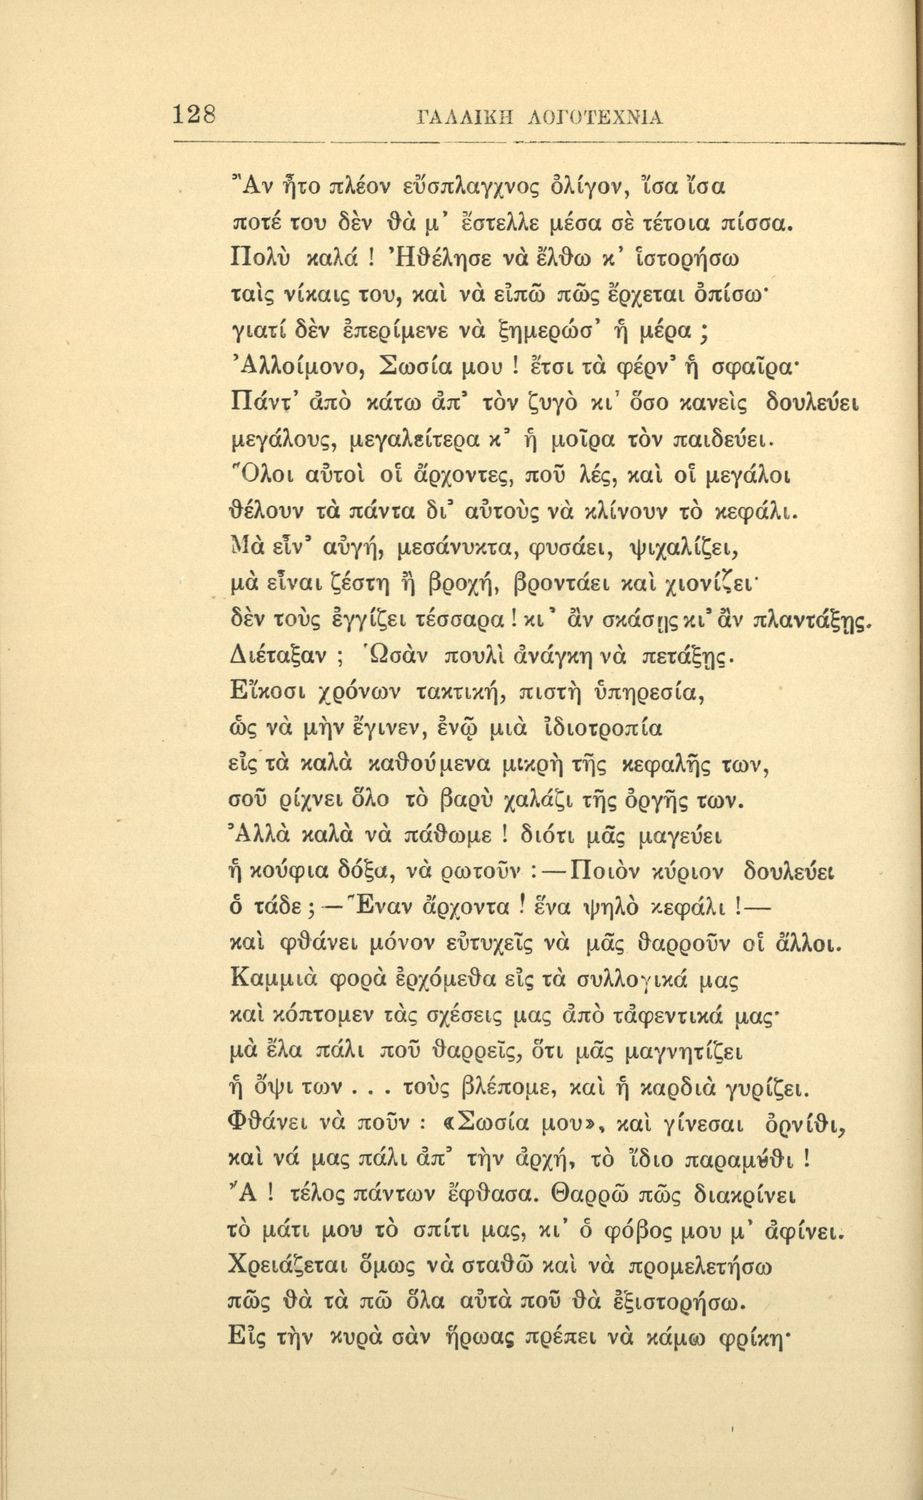 128
ΓΑΛΛΙΚΗ ΛΟΓΟΤΕΧΝΙΑ
Ἂν ἦτο πλέον εὔσπλαγχνος ὀλίγον, ἴσα ἴσα
ποτέ του δὲν θὰ μ’ ἔστελλε μέσα σὲ τέτοια πίσσα.
Πολὺ καλά ! Ἠθέλησε νὰ ἔλθω κ’ ἱστορήσω
ταὶς νίκαις του, καὶ νὰ εἰπῶ πῶς ἔρχεται ὀπίσω·
γιατί δὲν ἐπερίμενε νὰ ξημερώσ’ ἡ μέρα ;
Ἀλλοίμονο, Σωσία μου ! ἔτσι τὰ φέρν’ ἡ σφαῖρα·
Πάντ’ ἀπὸ κάτω ἀπ’ τὸν ζυγὸ κι’ ὅσο κανεὶς δουλεύει
μεγάλους, μεγαλείτερα κ’ ἡ μοῖρα τὸν παιδεύει.
Ὅλοι αὐτοὶ οἱ ἄρχοντες, ποῦ λές, καὶ οἱ μεγάλοι
θέλουν τὰ πάντα δι’ αὐτοὺς νὰ κλίνουν τὸ κεφάλι.
Μὰ εἶν’ αὐγή, μεσάνυκτα, φυσάει, ψιχαλίζει,
μὰ εἶναι ζέστη ἢ βροχή, βροντάει καὶ χιονίζει·
δὲν τοὺς ἐγγίζει τέσσαρα ! κι’ ἂν σκάσῃς κι’ ἂν πλαντάξῃς.
Διέταξαν ; Ὡσὰν πουλὶ ἀνάγκη νὰ πετάξῃς.
Εἴκοσι χρόνων τακτική, πιστὴ ὑπηρεσία,
ὡς νὰ μὴν ἔγινεν, ἐνῷ μιὰ ἰδιοτροπία
εἰς τὰ καλὰ καθούμενα μικρὴ τῆς κεφαλῆς των,
σοῦ ρίχνει ὅλο τὸ βαρὺ χαλάζι τῆς ὀργῆς των.
Ἀλλὰ καλὰ νὰ πάθωμε ! διότι μᾶς μαγεύει
ἡ κούφια δόξα, νὰ ρωτοῦν : — Ποιὸν κύριον δουλεύει
ὁ τάδε ; — Ἕναν ἄρχοντα ! ἕνα ψηλὸ κεφάλι ! —
καὶ φθάνει μόνον εὐτυχεῖς νὰ μᾶς θαρροῦν οἱ ἄλλοι.
Καμμιὰ φορὰ ἐρχόμεθα εἰς τὰ συλλογικά μας
καὶ κόπτομεν τὰς σχέσεις μας ἀπὸ τἀφεντικά μας·
μὰ ἔλα πάλι ποῦ θαρρεῖς, ὅτι μᾶς μαγνητίζει
ἡ ὄψι των . . . τοὺς βλέπομε, καὶ ἡ καρδιὰ γυρίζει.
Φθάνει νὰ ποῦν : «Σωσία μου», καὶ γίνεσαι ὀρνίθι,
καὶ νά μας πάλι ἀπ’ τὴν ἀρχή, τὸ ἴδιο παραμύθι !
Ἄ ! τέλος πάντων ἔφθασα. Θαρρῶ πῶς διακρίνει
τὸ μάτι μου τὸ σπίτι μας, κι’ ὁ φόβος μου μ’ ἀφίνει.
Χρειάζεται ὅμως νὰ σταθῶ καὶ νὰ προμελετήσω
πῶς θὰ τὰ πῶ ὅλα αὐτὰ ποῦ θὰ ἐξιστορήσω.
Εἰς τὴν κυρὰ σὰν ἥρωας πρέπει νὰ κάμω φρίκη·